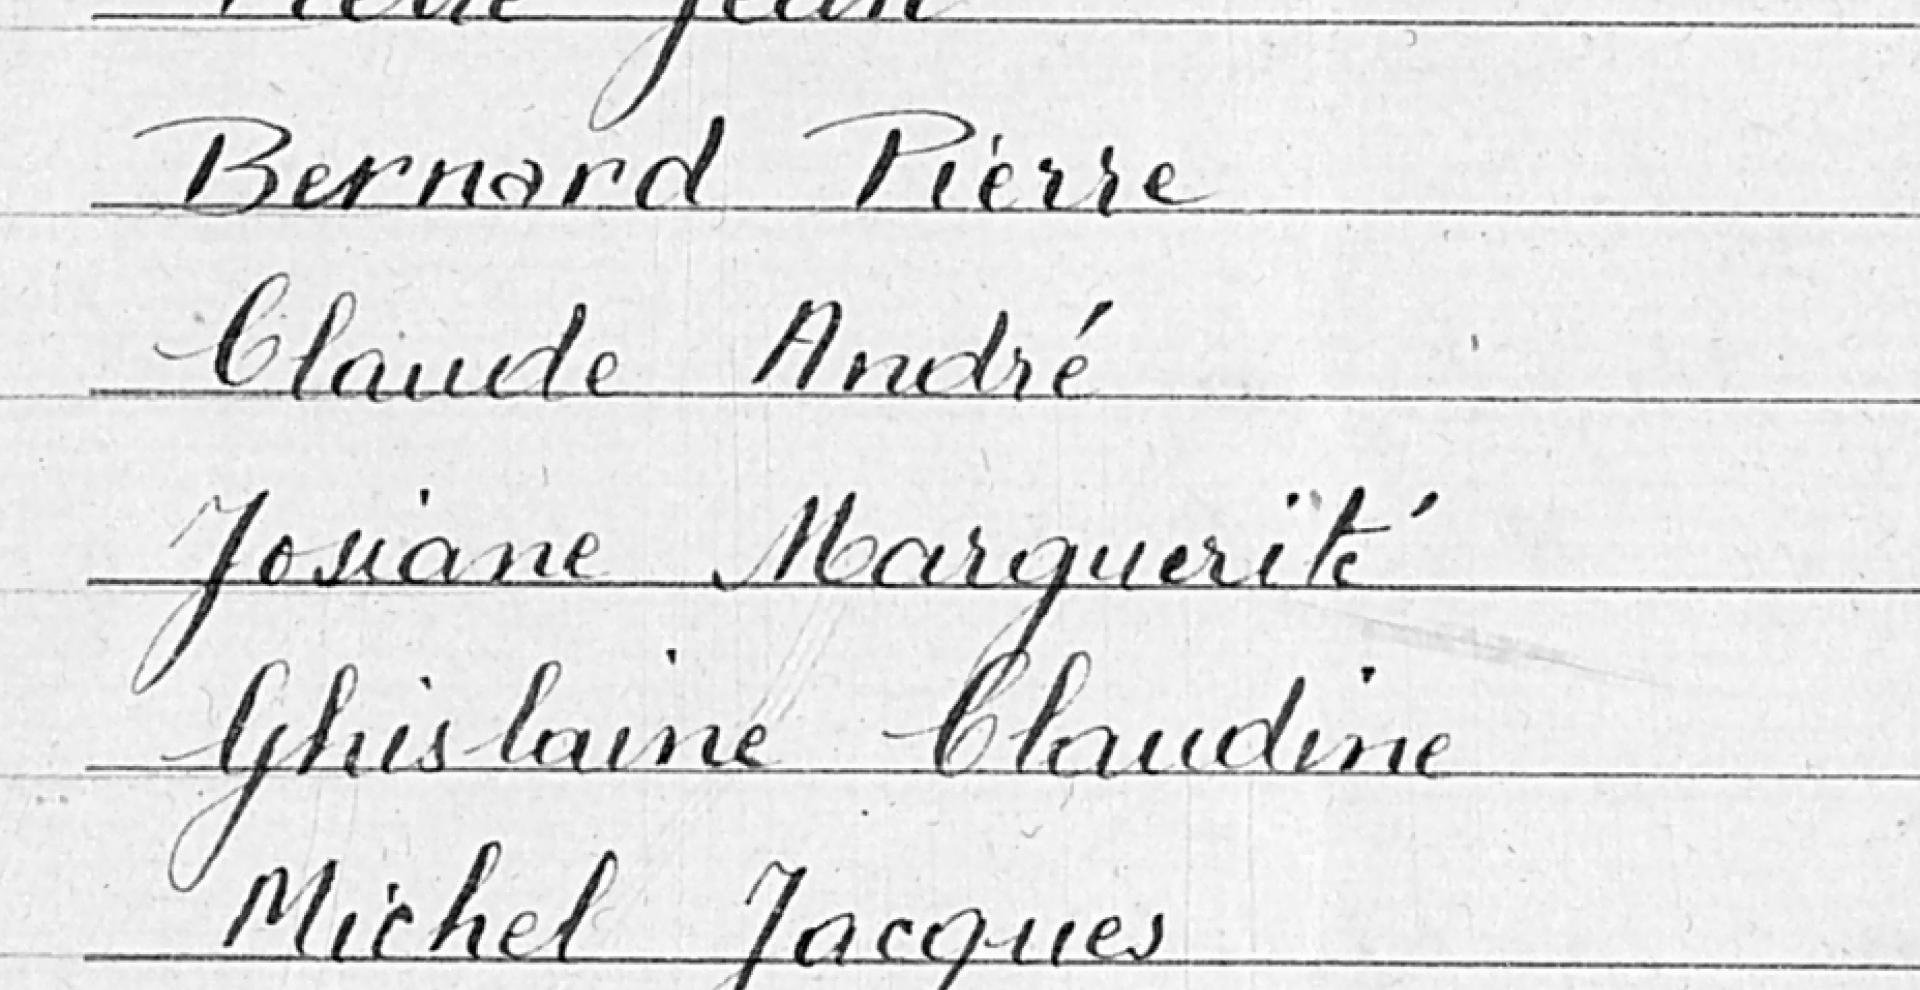 Pierre Jean
Bernard Pierre
Claude André
Josiane Marguerite
Ghislaine Claudine
Michel Jacques